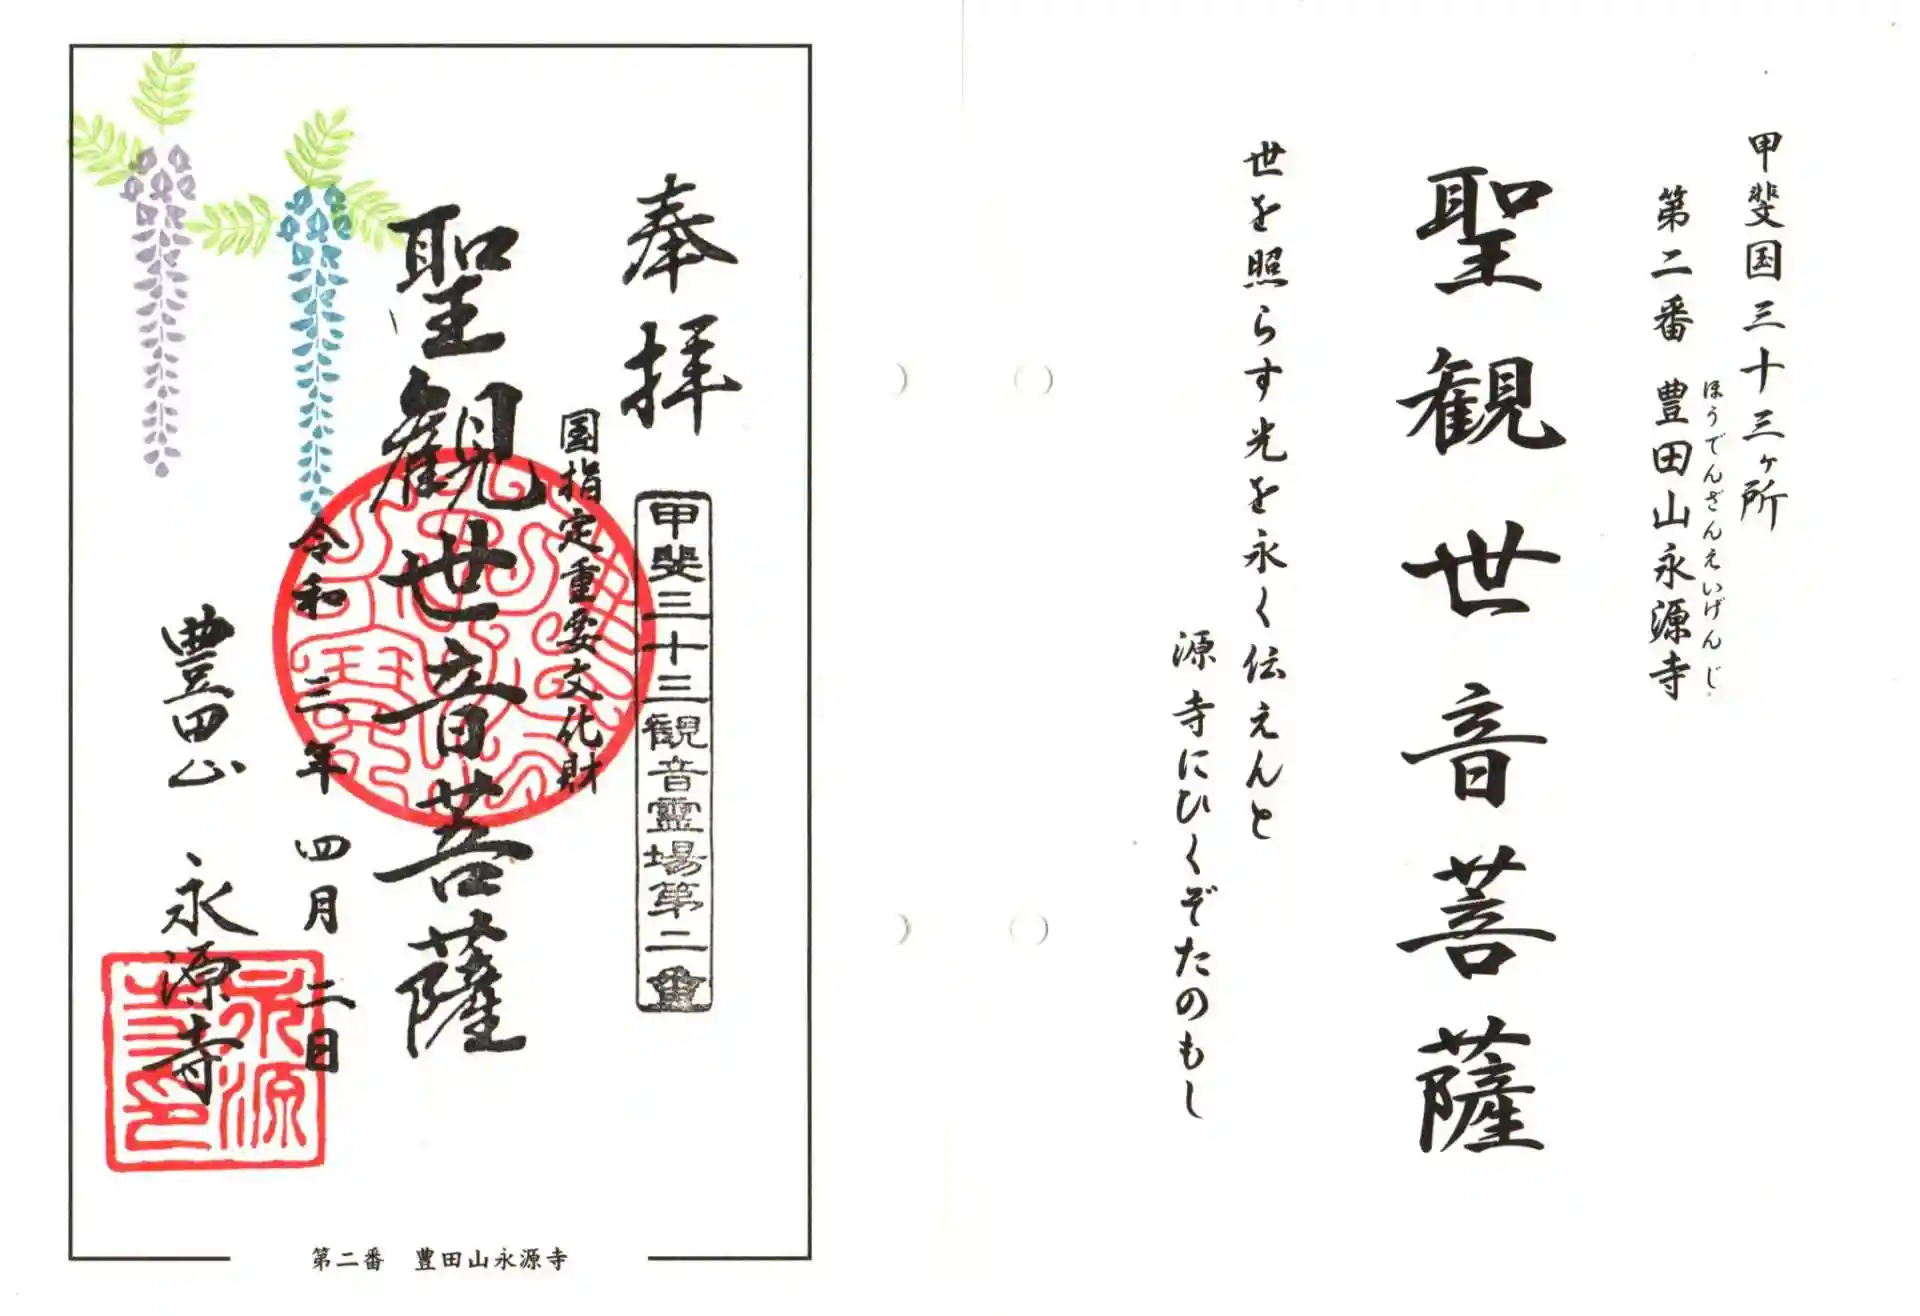 甲斐国三十三ヶ所
第二番 豊田山永源寺
ほうでんざんえいげんじ
聖観世音菩薩
世を照らす光を永く伝えんと
源寺にひくぞたのもし
奉拝
甲斐三十三観音霊場第二番
国指定重要文化財
聖観世音菩薩
令和三年四月二日
豊田山 永源寺
永源
寺印
第二番 豊田山永源寺